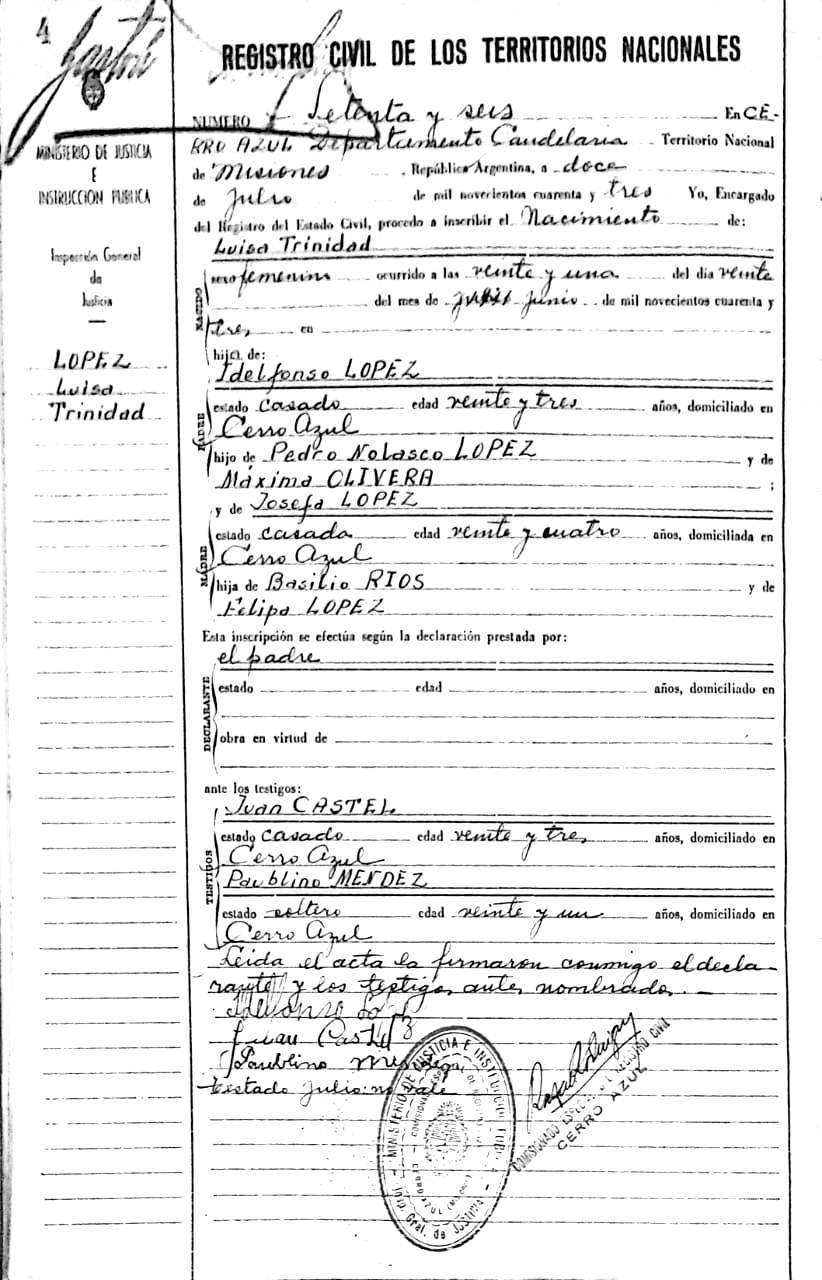 4
REGISTRO CIVIL DE LOS TERRITORIOS NACIONALES
MINISTERIO DE JUSTICIA
E
INSTRUCCION PUBLICA
Inspección General
de
Justicia
LOPEZ
Luisa
Trinidad
NUMERO Setenta y seis En CE-
RRO AZUL Departamento Candelaria Territorio Nacional
de Misiones República Argentina, a doce
de Julio de mil novecientos cuarenta y tres Yo, Encargado
del Registro del Estado Civil, procedo a inscribir el Nacimiento de:
Luisa Trinidad
NACIDO
sexo femenino ocurrido a las veinte y una del día veinte
del mes de Junio de mil novecientos cuarenta y
tres en
hija de:
Idelfonso LOPEZ
PADRE
estado casado edad veinte y tres años, domiciliado en
Cerro Azul
hijo de Pedro Nolasco LOPEZ y de
Máxima OLIVERA ;
y de Josefa LOPEZ
MADRE
estado casada edad veinte y cuatro años, domiciliada en
Cerro Azul
hija de Basilio RIOS y de
Felipa LOPEZ
Esta inscripción se efectúa según la declaración prestada por:
el padre
DECLARANTE
estado edad años, domiciliado en
obra en virtud de
ante los testigos:
Juan CASTEL
TESTIGOS
estado casado edad veinte y tres años, domiciliado en
Cerro Azul
Paublino MENDEZ
estado soltero edad veinte y un años, domiciliado en
Cerro Azul
Leida el acta la firmaron conmigo el decla-
rante y los testigos antes nombrados.-
Juan Castel
Paublino
Testado Julio: no vale
MINISTERIO DE JUSTICIA E INSTRUCCION PUBLICA
Insp. Gral. de Justicia
CERRO AZUL